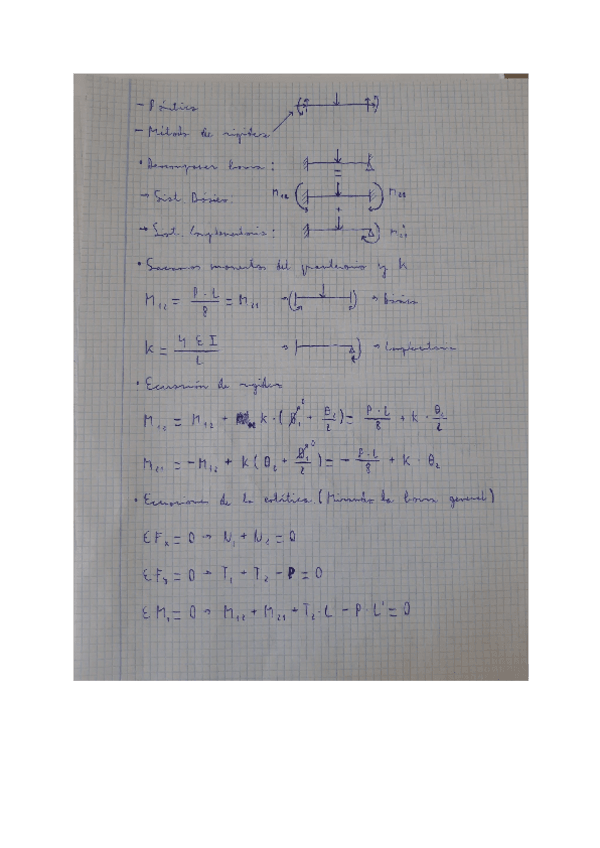 - Pórtico
- Método de rigidez
• Descomponer barra:
=
→ Sist. Básico M₁₂ M₂₁
+
→ Sist. Complementario: M₂₁
• Sacamos momentos del prontuario y K
M₁₂ = P · L / 8 = M₂₁ → → Básico
K = 4 E I / L → → Complementario
• Ecuación de rigidez
M₁₂ = M₁₂ + K · (θ₁ + θ₂/2) = P · L / 8 + K · θ₂/2
M₂₁ = - M₁₂ + K (θ₂ + θ₁/2) = - P · L / 8 + K · θ₂
• Ecuaciones de la estática (Mirando la barra general)
ΣFₓ = 0 → N₁ + N₂ = 0
ΣFᵧ = 0 → T₁ + T₂ - P = 0
ΣM₁ = 0 → M₁₂ + M₂₁ + T₂ · L - P · L' = 0